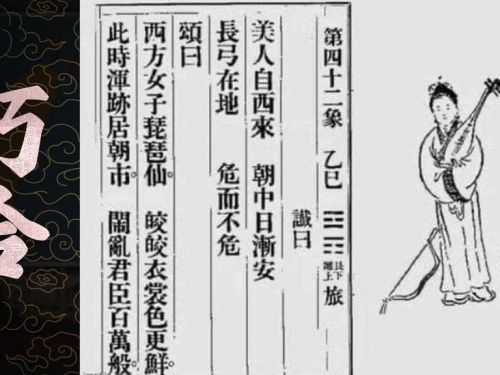 第四十二象 乙巳 艮下離上 旅
讖曰
美人自西來 朝中日漸安
長弓在地 危而不危
頌曰
西方女子琵琶仙。 皎皎衣裳色更鮮。
此時渾跡居朝市。 鬧亂君臣百萬般。